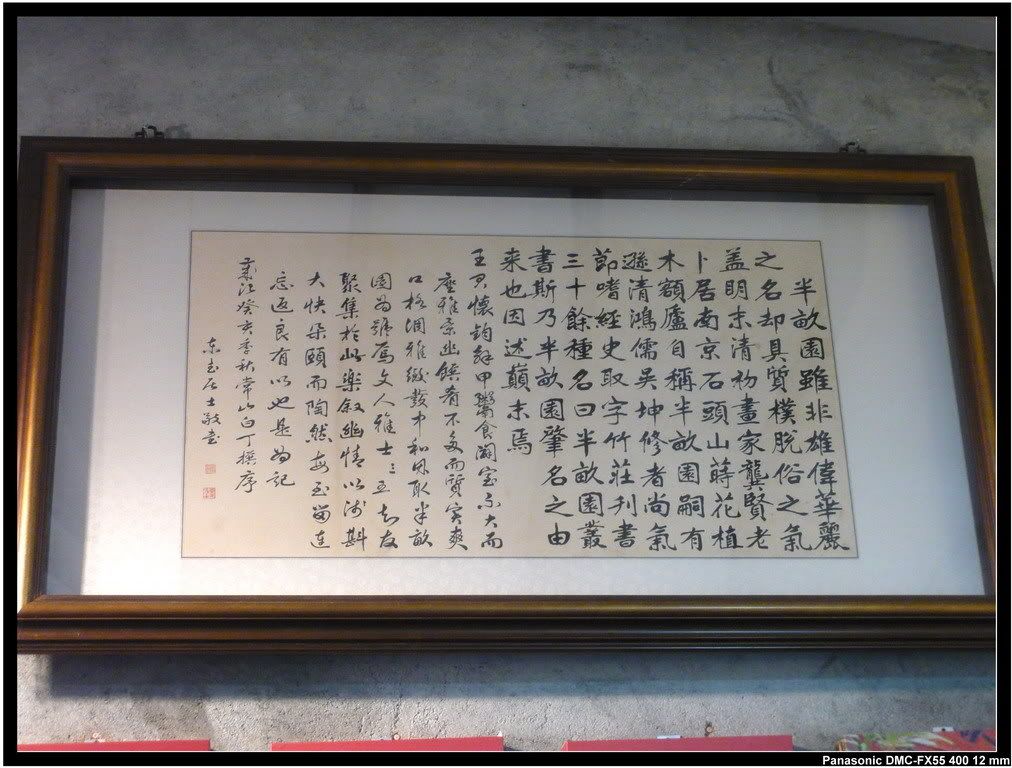 半畝園雖非雄偉華麗
之名却具質樸脫俗之氣
盖明末清初畫家龔賢老
卜居南京石頭山蒔花植
木額廬自稱半畝園嗣有
遜清鴻儒吴坤修者尚氣
節嗜經史取字竹莊刋書
三十餘種名曰半畝園叢
書斯乃半畝園肇名之由
来也因述巔末焉
王君懷鈞甲粥食闢室不大而
座雅景幽饌肴不多而質實爽
口格調雅緻發中和因取半畝
園為號焉文人雅士三五知友
聚集於此樂叙幽情以酒斟
大快朵頤而陶然每至留連
忘返良有以也是為記
癸亥季秋常山白丁撰序
東玉居士敬書
Panasonic DMC-FX55 400 12 mm